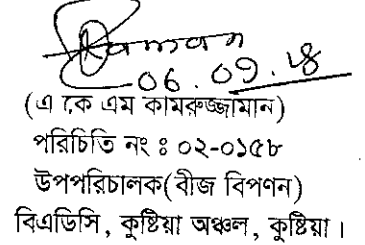 06.09.18
(এ কে এম কামরুজ্জামান)
পরিচিতি নং ঃ ০২-০১৫৮
উপপরিচালক(বীজ বিপণন)
বিএডিসি, কুষ্টিয়া অঞ্চল, কুষ্টিয়া।